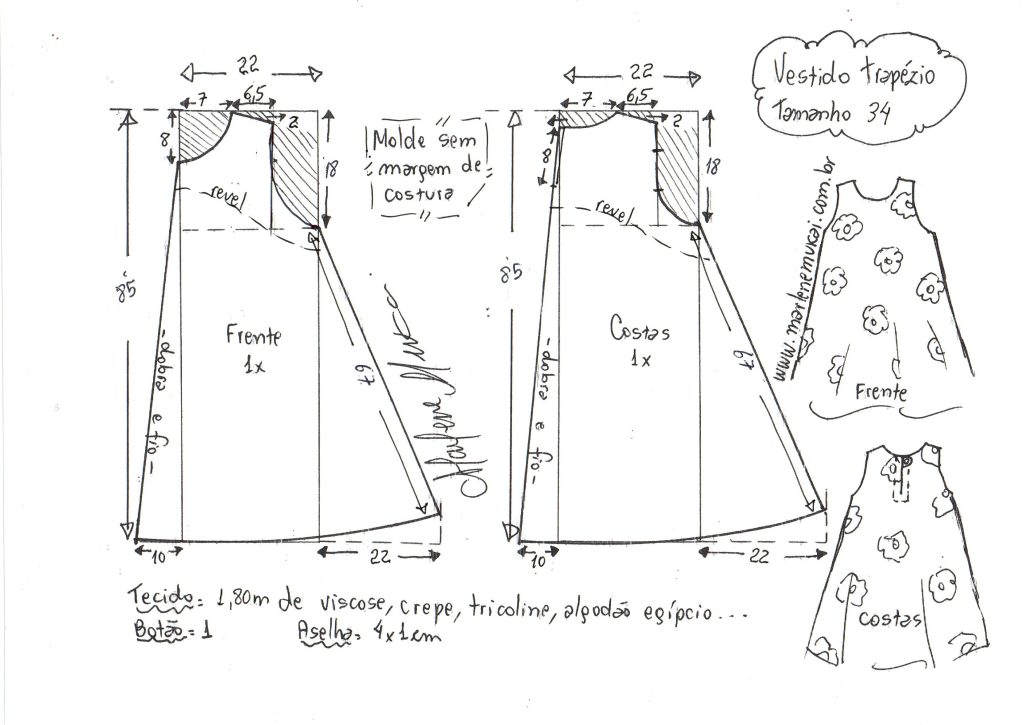 Vestido trapézio
Tamanho 34
22
7
6,5
2
8
18
85
revel
Frente
1x
- dobra e fio -
67
10
22
Molde sem
margem de
costura
Marlene Mukai
22
7
6,5
2
8
18
85
revel
Costas
1x
- dobra e fio -
67
10
22
www.marlenemukai.com.br
Frente
Costas
Tecido = 1,80m de viscose, crepe, tricoline, algodão egípcio...
Botão = 1
Aselha = 4x1cm